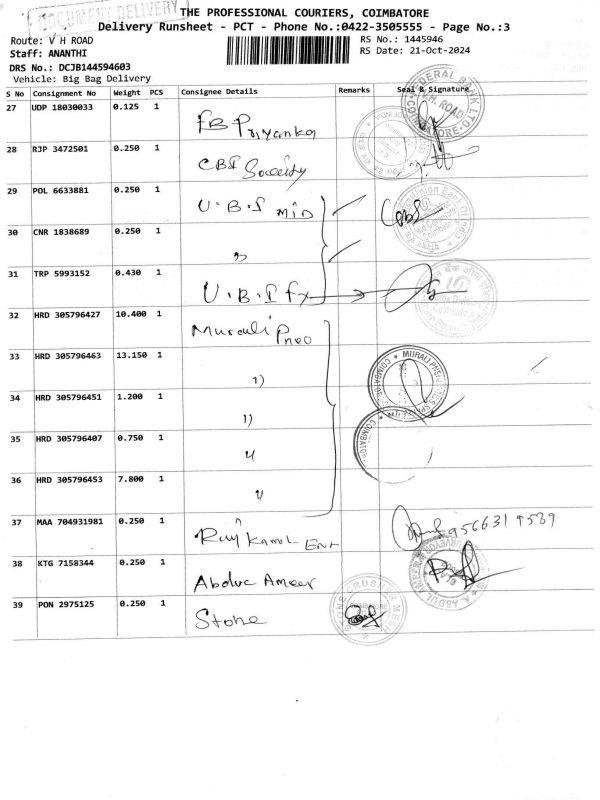 DOCUMENT DELIVERY
THE PROFESSIONAL COURIERS, COIMBATORE
Delivery Runsheet - PCT - Phone No.:0422-3505555 - Page No.:3
Route: V H ROAD
RS No.: 1445946
Staff: ANANTHI
RS Date: 21-Oct-2024
DRS No.: DCJB144594603
Vehicle: Big Bag Delivery
S No Consignment No Weight PCS Consignee Details Remarks Seal & Signature
27 UDP 18030033 0.125 1 FB Priyanka
FEDERAL BANK LTD V.H. ROAD
28 RJP 3472501 0.250 1 CBI Society
29 POL 6633881 0.250 1 U.B.I MID
Union Bank Of India
30 CNR 1838689 0.250 1 "
31 TRP 5993152 0.430 1 U.B.I fx
32 HRD 305796427 10.400 1 Murali Pneo
33 HRD 305796463 13.150 1 "
COIMBATORE MURALI
34 HRD 305796451 1.200 1 "
35 HRD 305796407 0.750 1 "
36 HRD 305796453 7.800 1 "
37 MAA 704931981 0.250 1 Raj Kamal Ent
9566319539
38 KTG 7158344 0.250 1 Abdul Ameer
A. ABDUL
39 PON 2975125 0.250 1 Stone
STONE CRUSHER